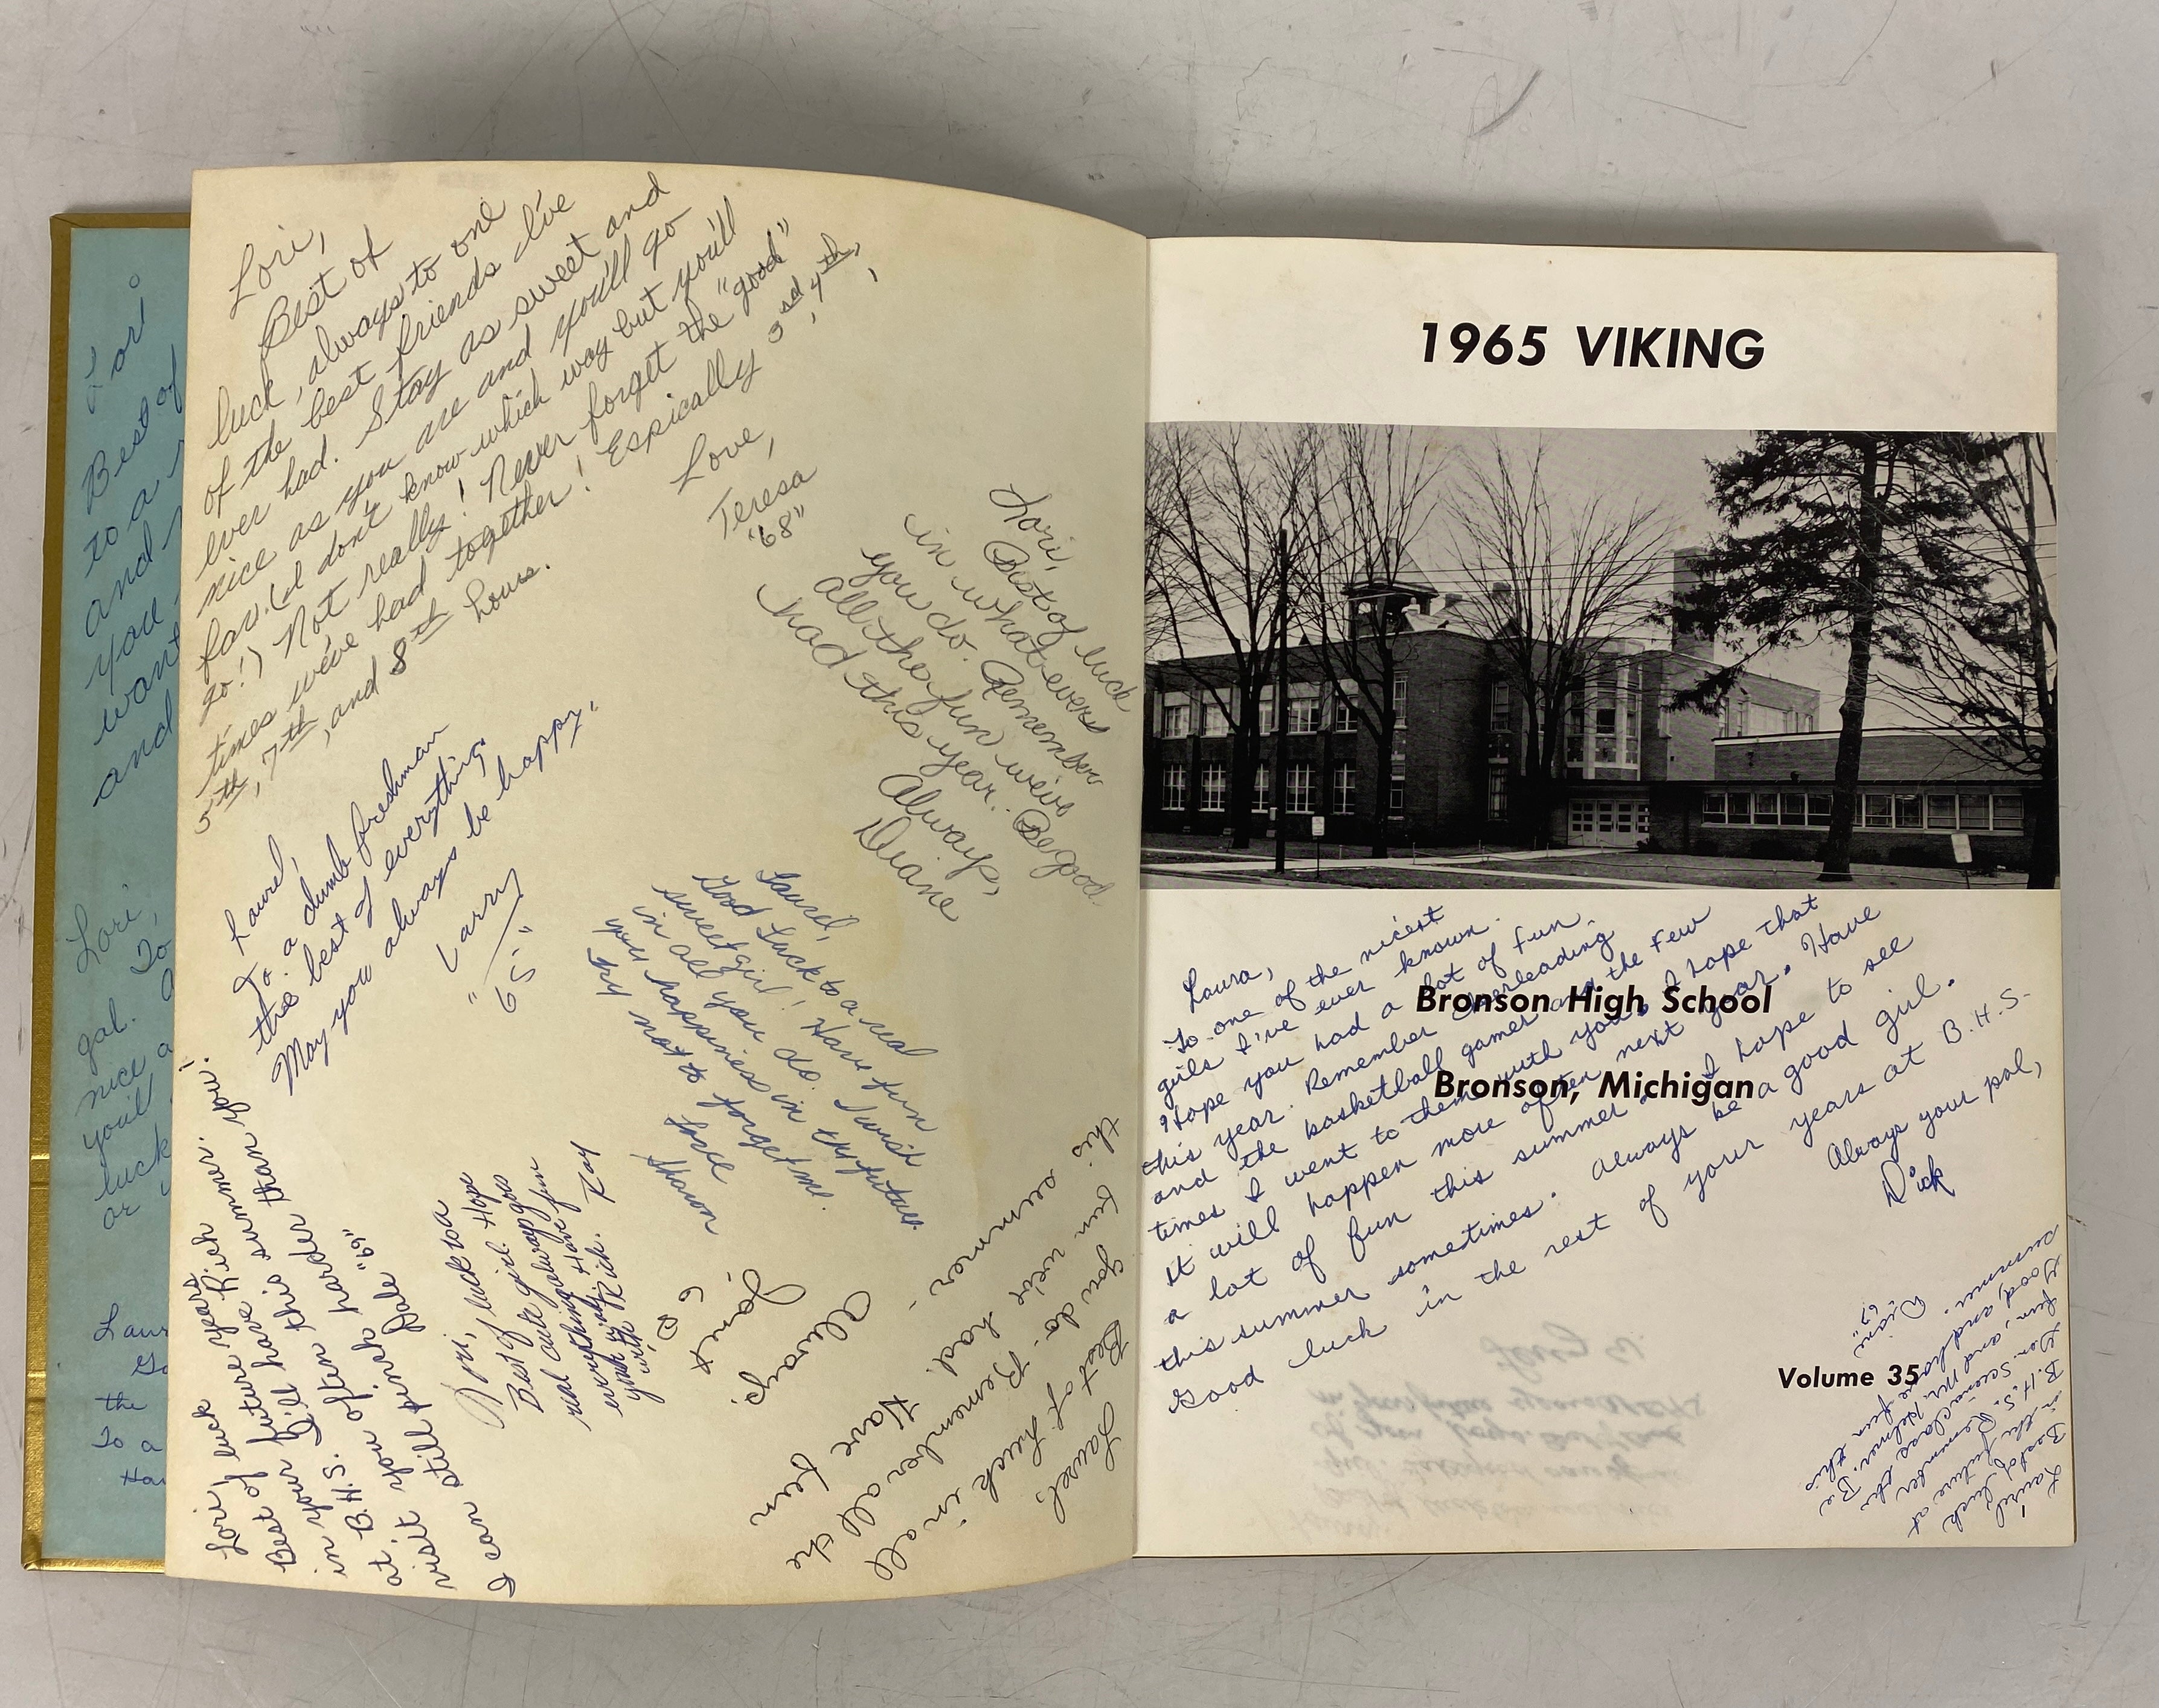 Lori
Best of
to a
and
you
want
and
Lori,
To
gal.
nice a
you'll
luck
or
Laur
Go
the
To a
Hav
Lori,
Best of
luck, always to one
of the best friends I've
ever had. Stay as sweet and
nice as you are and you'll go
far. (I don't know which way but you'll
go!) Not really! Never forget the "good"
times we've had together! Espically 3rd, 4th,
5th, 7th, and 8th hours.
Love,
Teresa
"68"
Lori,
Best of luck
in what evers
you do. Remember
all the fun we've
had this year. Be good.
Always,
Diane
Laurel,
To a dumb freshman
the best of everything.
May you always be happy.
Larry
"65"
Laurel,
Good Luck to a real
sweet girl! Have fun
in all you do. I wish
you happiness in thy future.
Try not to forget me.
Love
Sharon
Lori, luck
Best of future years.
Best your have Rich summer.
in your Bill this than you!
B.H.S. I harder
at. you often hard "69"
visit still pinch Dale
I can
Lori,
Best of luck to a
real cute girl. Hope
everything always goes
your way. Have fun
with Rich. Kay
Laurel,
Best of Luck in all
you do. Remember all the
fun we've had. Have fun
this summer.
Always,
Janet
1965 VIKING
Laura,
To one of the nicest
girls I've ever known.
Hope you had a lot of fun
this year. Remember cheerleading
and the basketball games and the few
times I went to them with you. I hope that
it will happen more often next year. Have
a lot of fun this summer. I hope to see
this summer sometimes. Always be a good girl.
Good luck in the rest of your years at B.H.S.
Always your pal,
Dick
Bronson High School
Bronson, Michigan
Volume 35
Laurel
Best of luck
in the future at
B.H.S. Remember
Gen. Science class the
fun, and Mr. Helmer. Be
Good, and have fun this
summer.
Diane
"67"